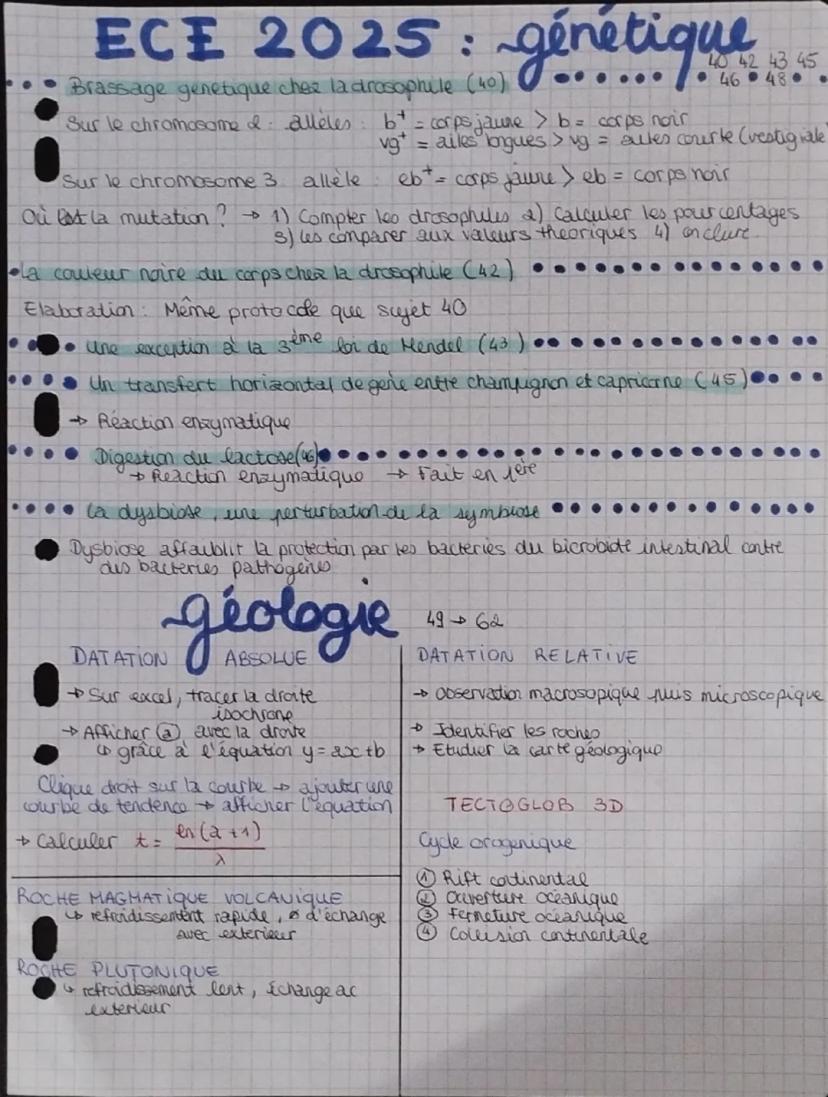 ECE 2025 : génétique
40 42 43 45
46 • 48
Brassage genetique chez la drosophile (40)
Sur le chromosome 2 : allèles : b+ = corps jaune > b = corps noir
vg+ = ailes longues > vg = ailes courte (vestigiale
Sur le chromosome 3 allèle : eb+ = corps jaune > eb = corps noir
Où est la mutation ? → 1) Compter les drosophiles 2) Calculer les pourcentages
3) les comparer aux valeurs theoriques 4) conclure
• La couleur noire du corps chez la drosophile (42)
Elaboration : Même protocole que sujet 40
• Une exception à la 3ème loi de Mendel (43)
Un transfert horizontal de gène entre champignon et capricorne (45)
→ Réaction enzymatique
Digestion du lactose (46)
→ Réaction enzymatique → Fait en 1ère
La dysbiose, une perturbation de la symbiose
Dysbiose affaiblit la protection par les bacteries du bicrobiote intestinal contre
des bacteries pathogènes
géologie 49 → 62
DATATION ABSOLUE
→ Sur excel, tracer la droite
isochrone
→ Afficher (a) avec la droite
↳ grâce à l'équation y = ax+b
Clique droit sur la courbe → ajouter une
courbe de tendence → afficher l'équation
→ Calculer t = ln(a+1) / λ
ROCHE MAGMATIQUE VOLCANIQUE
↳ refroidissement rapide, ø d'échange
avec exterieur
ROCHE PLUTONIQUE
↳ refroidissement lent, échange ac
exterieur
DATATION RELATIVE
→ Observation macrosopique puis microscopique
→ Identifier les roches
→ Etudier la carte géologique
TECTOGLOB 3D
Cycle orogenique
① Rift continental
② Ouverture océanique
③ Fermeture océanique
④ Collision continentale